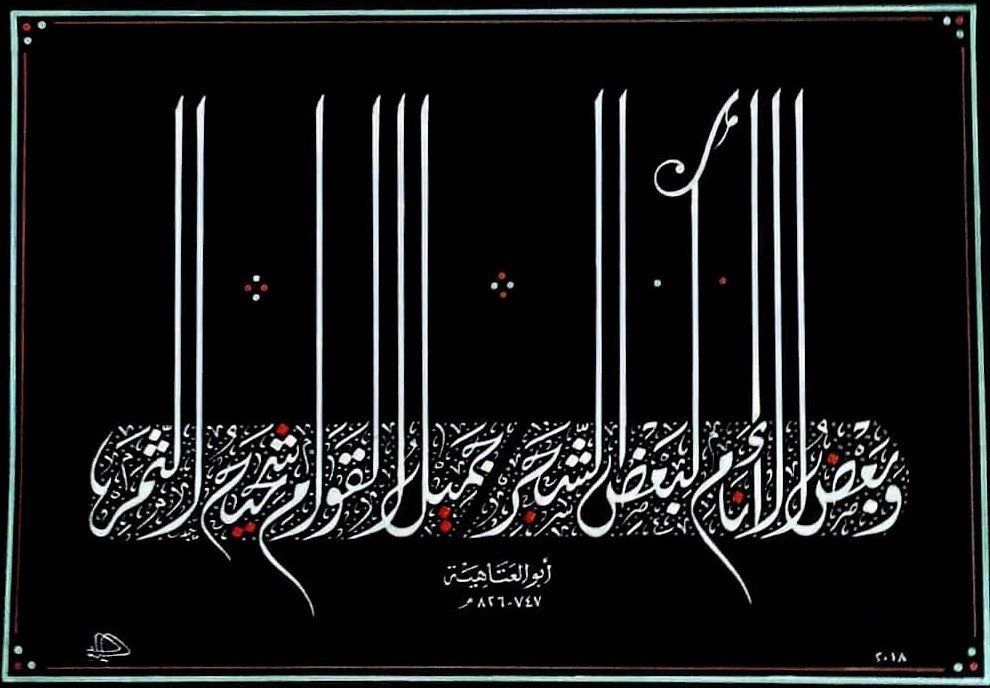 وبعض الأنام كبعض الشجر / جميل القوام شحيح الثمر
أبو العتاهية
٧٤٧-٨٢٦ م
٢٠١٨